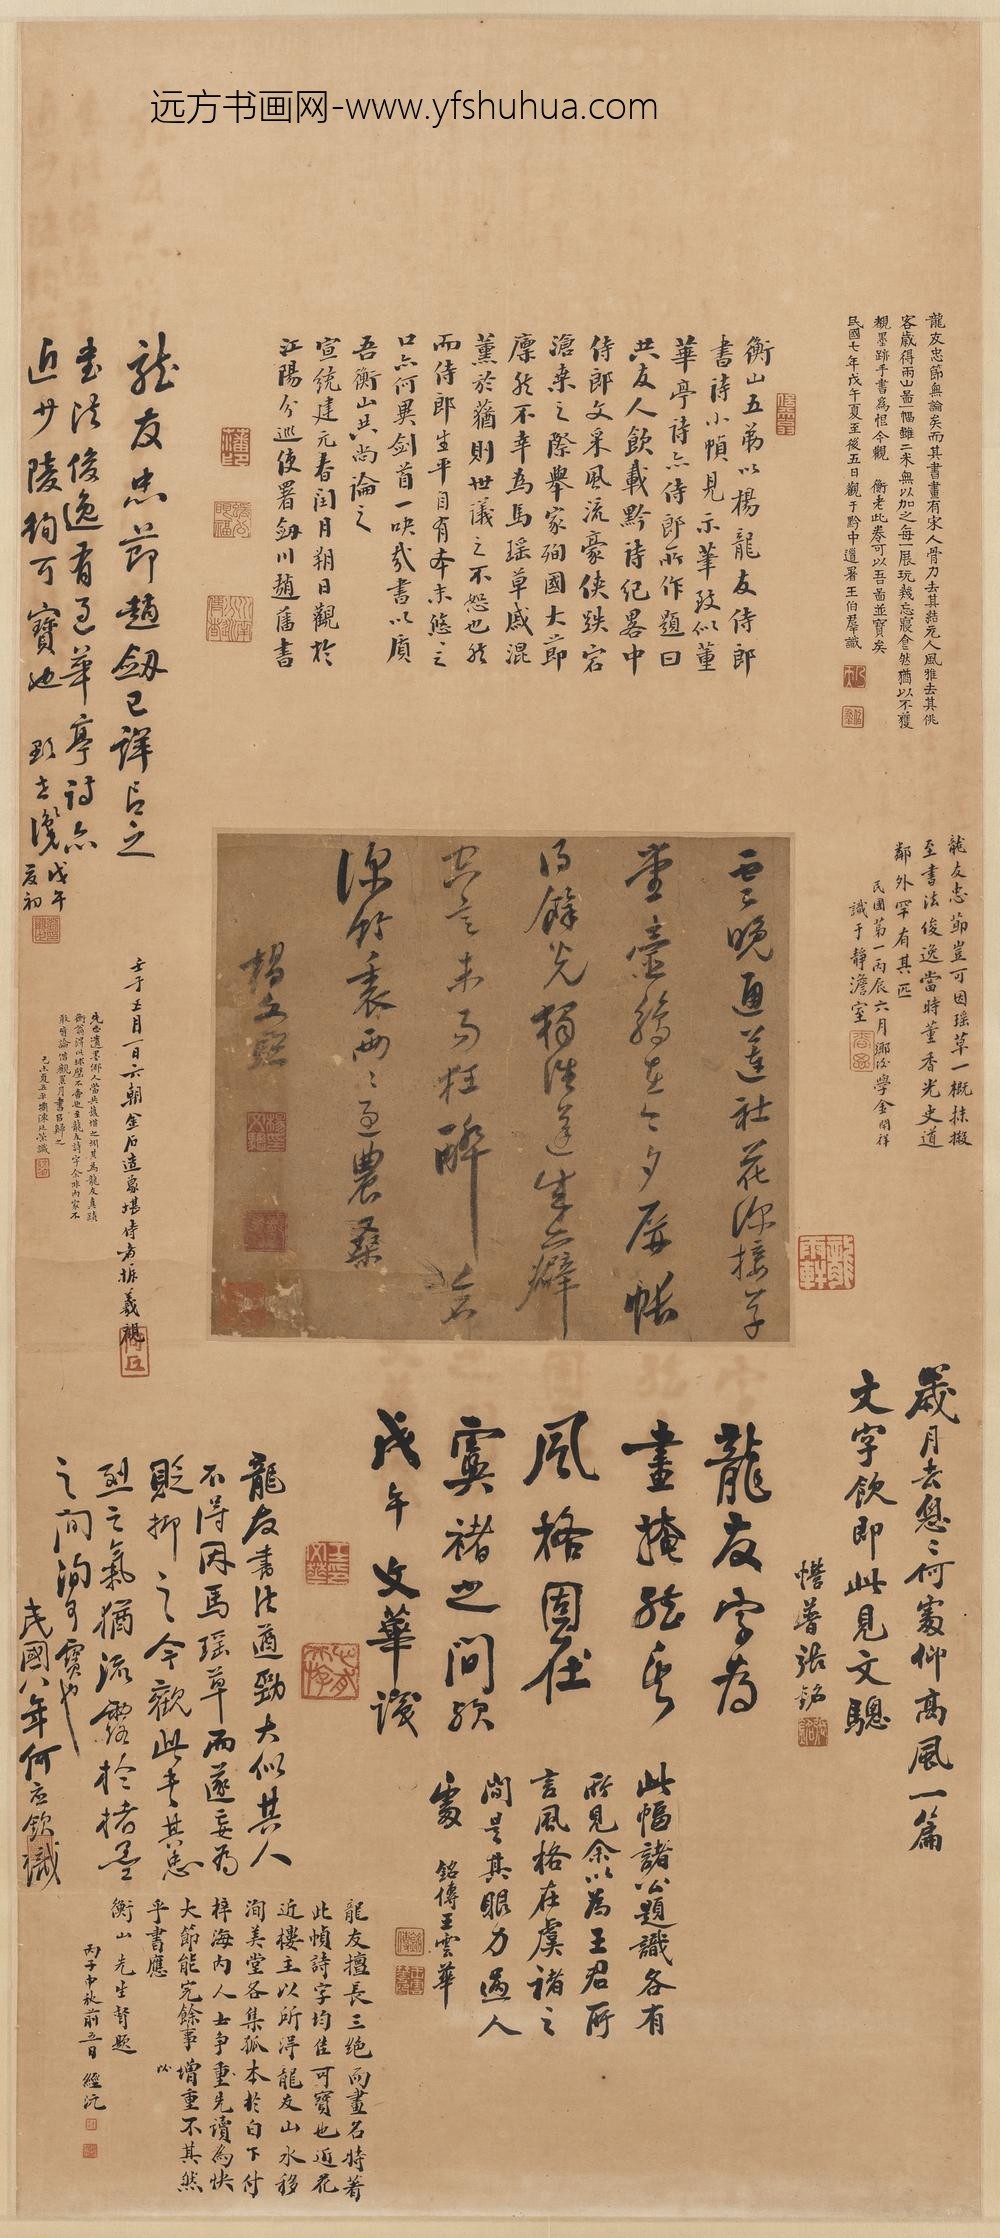 远方书画网-www.yfshuhua.com
龍友忠節無論矣而其書畫有宋人骨力去其結元人風雅去其佻
客歲得兩山圖一幅雖二米無以加之每一展玩輒忘寢食然猶以不獲
親墨跡手書為恨今觀 衡老此卷可以吾啚並寶矣
民國七年戊午夏至後五日觀于黔中道署王伯群識
衡山五弟以楊龍友侍郎
書詩小幀見示筆致似董
華亭詩亦侍郎所作題曰
共友人飲載黔詩紀畧中
侍郎文采風流豪俠跌宕
滄桑之際舉家殉國大節
凜然不幸為馬瑤草戚混
薰於蕕則世議之不恕也然
而侍郎生平自有本末悠之
口亦何異劍首一吷哉書以質
吾衡山共尚論之
宣統建元春閏月朔日觀於
江陽分巡使署劔川趙藩書
龍友忠節趙劔已詳言之
書法俊逸有過華亭詩亦
近少陵詢可寶也
戊午
夏初
龍友忠節豈可因瑶草一概抹摋
至書法俊逸當時董香光史道
鄰外罕有其匹
民國第一丙辰六月鄉後學金開祥
識于靜澹室
雲晚通蓮社花深接草
堂壺觴在今夕屏帳
得餘光獨往蓬生癖
忘言未為狂醉
深竹裏兩兩過農桑
楊文驄
壬子五月一日六朝金石造象堪侍者振羲觀
歲月去怱怱何處仰高風一篇
文字飲即此見文驄
懵葊張銘
龍友字為
畫掩然其
風格固在
虞褚之間歟
戊午 文華識
此幅諸公題識各有
所見余以為王君所
言風格在虞褚之
間是其眼力過人
處 銘傳王雲華
龍友書法遒勁大似其人
不得因馬瑶草而遂妄為
貶抑之今觀此書其忠
烈之氣猶流露於楮墨
之間洵可寶也
民國八年何應欽識
龍友擅長三絕而畫名特著
此幀詩字均佳可寶也近花
近樓主以所得龍友山水移
洵美堂各集孤本於白下付
梓海內人士爭重先讀為快
大節能完餘事增重不其然
乎書應 以
衡山先生督題
丙子中秋前五日 經沅